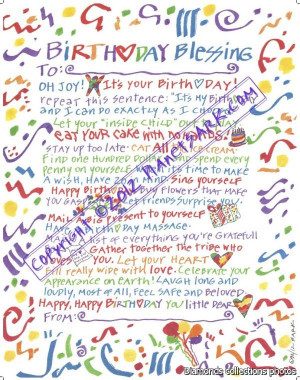 BIRTHDAY Blessing
To:
OH JOY! It's YOUR BIRTHDAY!
repeat this sentence: "It's My Birthday
and I can Do EXACTLY AS I choose
Let your "inside child" out
eat YOUR CAKE with no hands.
STAY UP TOO LATE. EAT All ice cream.
Find one Hundred Dollars spend every
Penny on yourself. minutes time to make
A wish, Have 2nd sing yourself
Happy Birthday Buy Flowers that make
You gasp. Let friends surprise you.
Mail present to yourself
Have Birthday Massage.
list of everything you're grateful
Gather together the tribe who
loves YOU. Let YOUR HEART
fill really wide with love. Celebrate your
Appearance on Earth! Laugh long and
loudly, Most of All, Feel safe and Beloved
Happy, Happy Birthday you little dear
From:
Copyright © 2012 PlanetSARK.com
Diamonds collections photos